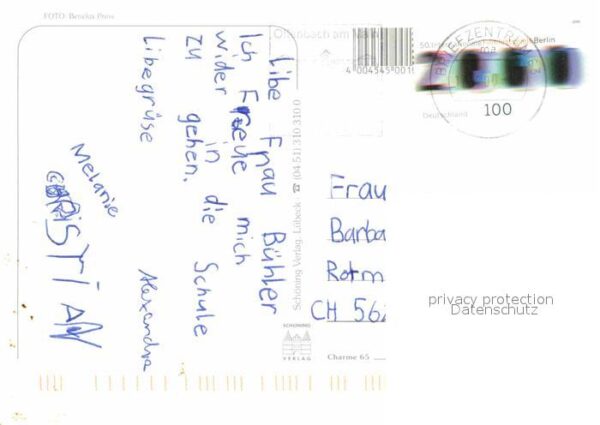 FOTO: Benelux Press
Libe Frau Bühler
Ich Freue mich
wider in die Schule
zu gehen.
Libegrüse Alexandra
Melanie
CHRISTIAN
Schöning Verlag, Lübeck ☎ (04 51) 310 310 0
SCHÖNING
VERLAG
Charme 65
Offenbach am
4 004545 0015
Berlin
BRIEFZENTRUM
100
Deutschland
Frau
Barba
Rotm
CH 562
privacy protection
Datenschutz